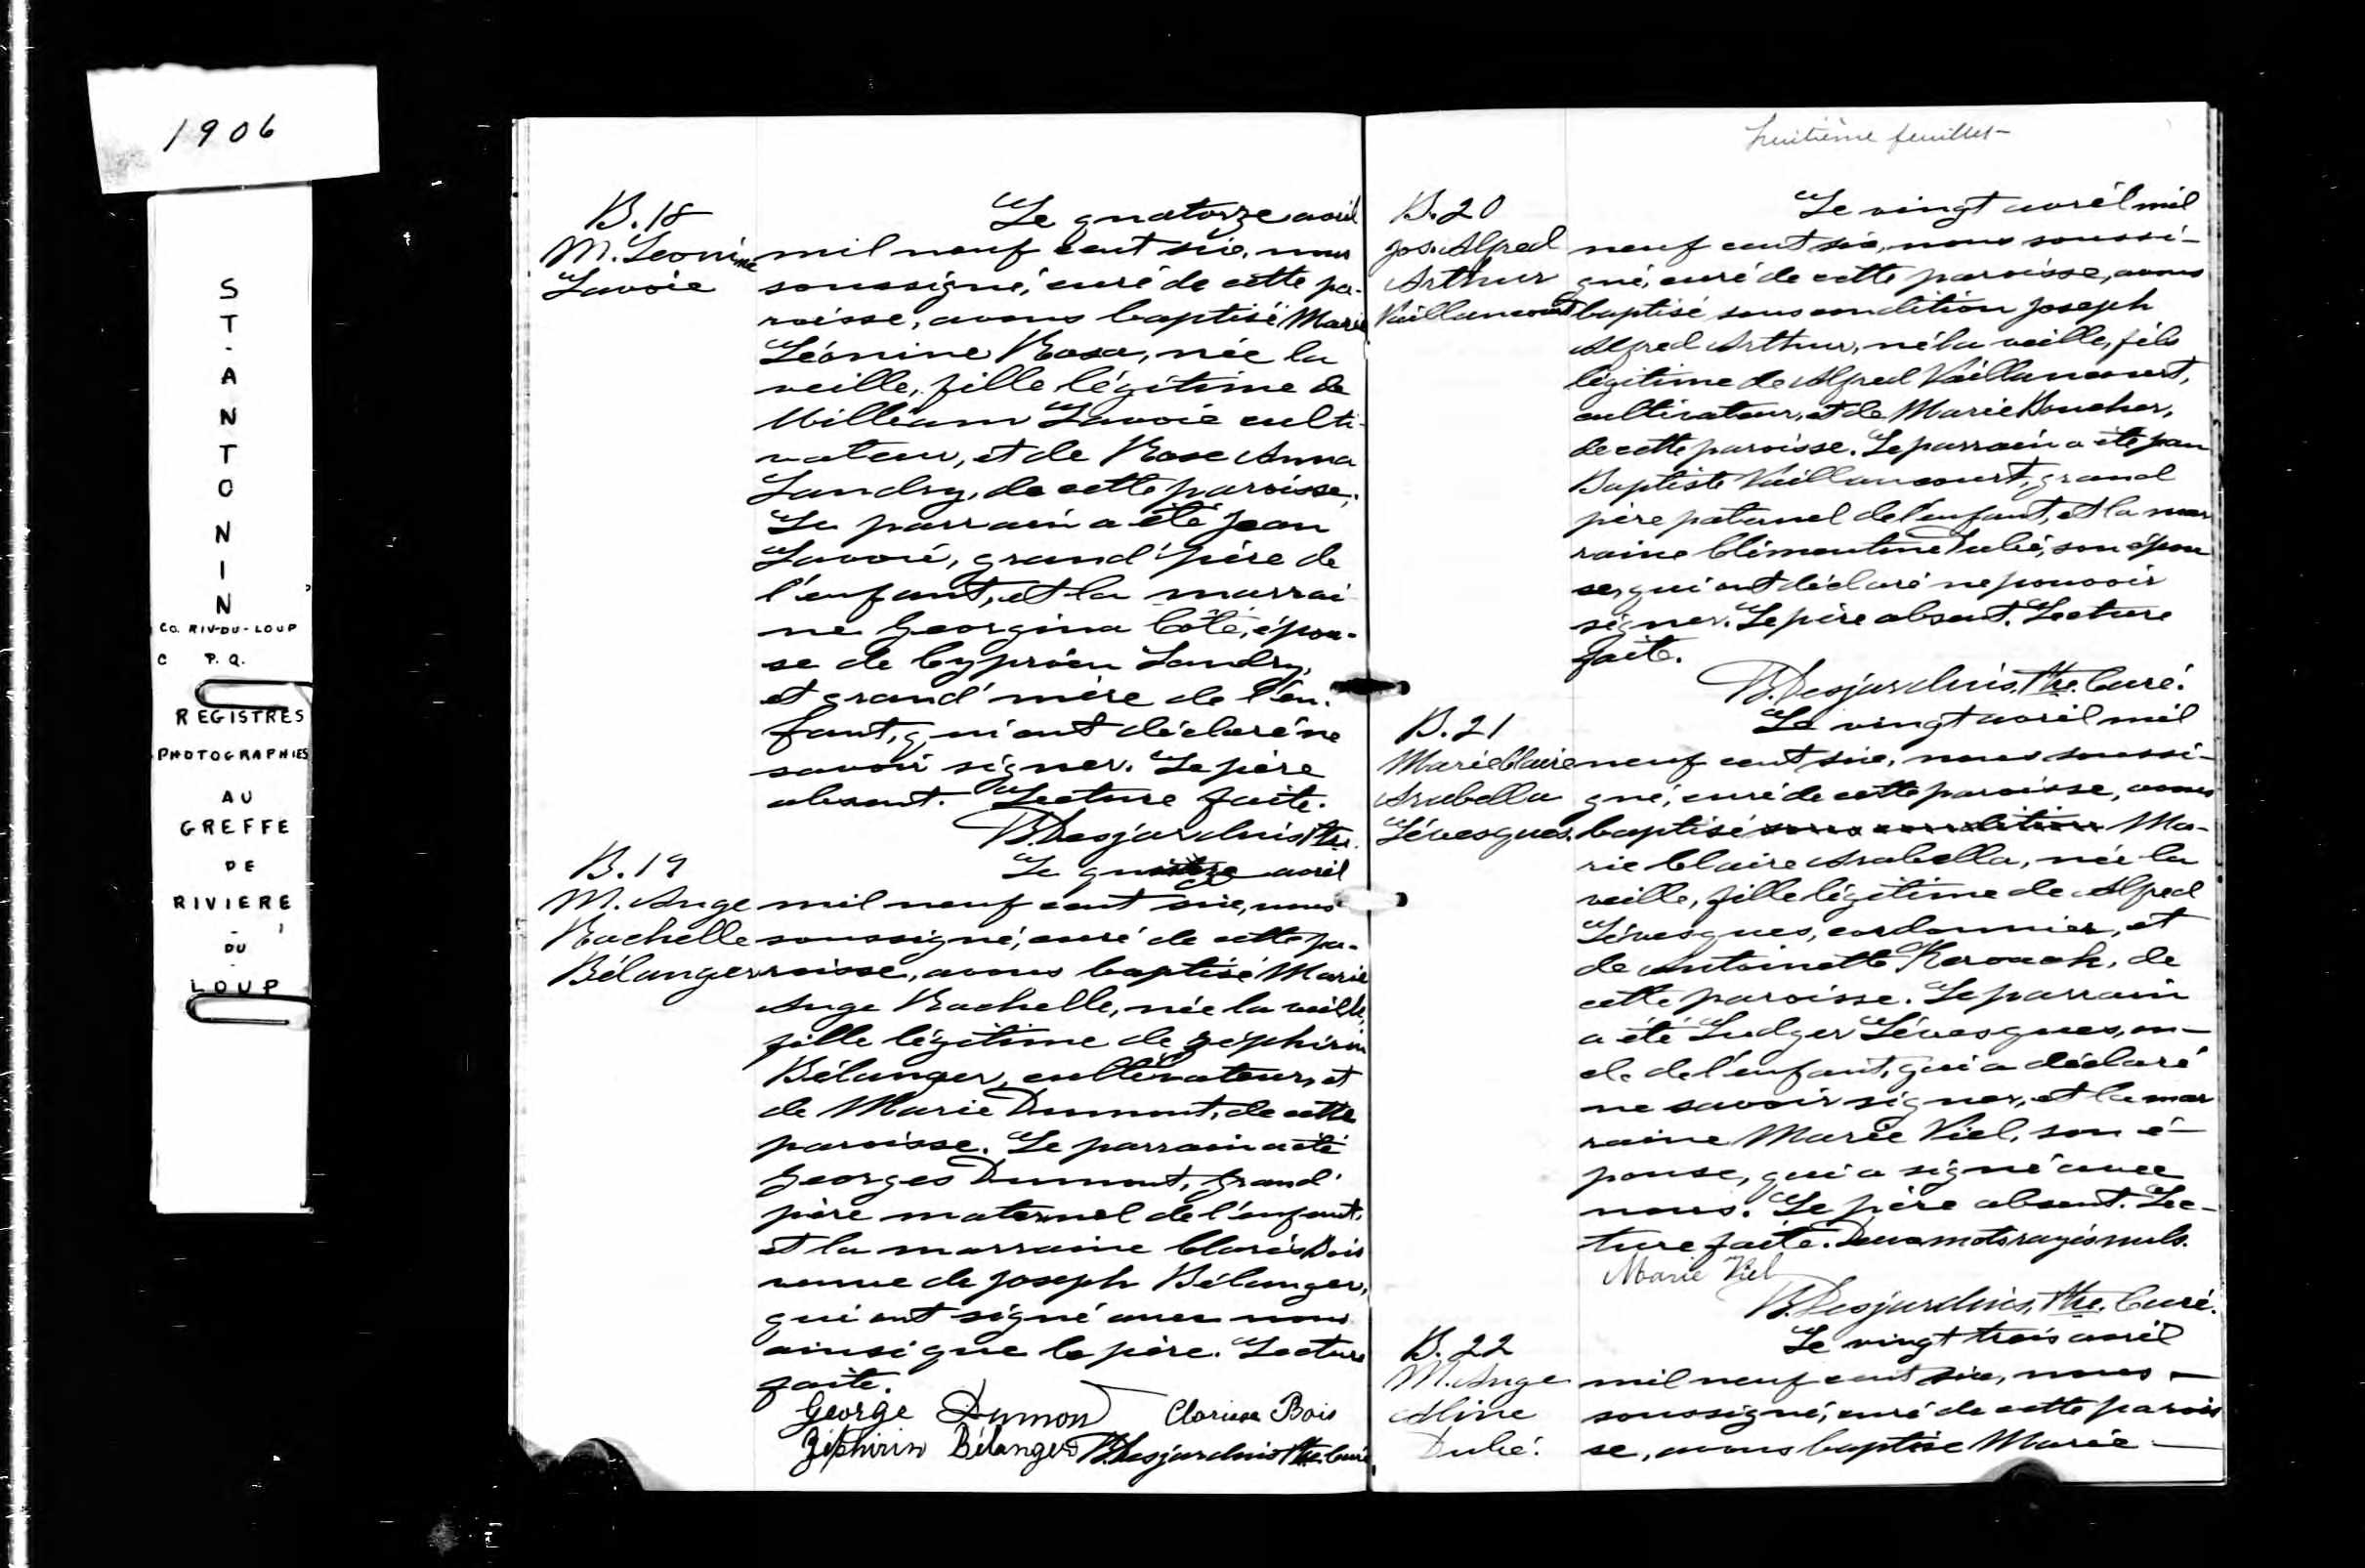 1906
ST-ANTONIN
CO. RIV-DU-LOUP
C P.Q.
REGISTRES
PHOTOGRAPHIES
AU
GREFFE
DE
RIVIERE
-
DU
-
LOUP
B.18
M. Leonine
Lavoie
Le quatorze avril
mil neuf cent six, nous
soussigné, curé de cette pa-
roisse, avons baptisé Marie
Léonine Rosa, née la
veille, fille légitime de
William Lavoie culti-
vateur, et de Rose Anna
Landry, de cette paroisse.
Le parrain a été Jean
Lavoie, grand'père de
l'enfant, et la marrai
ne Georgina Côté, épou-
se de Cyprien Landry,
et grand'mère de l'en-
fant, qui ont déclaré ne
savoir signer. Le père
absent. Lecture faite.
B. Desjardins Ptre.
B.19
M. Ange
Rachelle
Bélanger
Le quinze avril
mil neuf cent six, nous
soussigné, curé de cette pa-
roisse, avons baptisé Marie
Ange Rachelle, née la veille,
fille légitime de Zéphirin
Bélanger, cultivateur, et
de Marie Dumont, de cette
paroisse. Le parrain a été
Georges Dumont, grand'
père maternel de l'enfant,
et la marraine Bois
veuve de Joseph Bélanger,
qui ont signé avec nous
ainsi que le père. Lecture
faite.
George Dumond Clarisse Bois
Zéphirin Bélanger B. Desjardins Ptre. Curé
huitième feuillet-
B.20
Jos. Alfred
Arthur
Vaillancourt
Le vingt avril mil
neuf cent six, nous soussi-
gné, curé de cette paroisse, avons
baptisé sous condition Joseph
Alfred Arthur, né la veille, fils
légitime de Alfred Vaillancourt,
cultivateur, et de Marie Boucher,
de cette paroisse. Le parrain a été Jean
Baptiste Vaillancourt, grand
père paternel de l'enfant, et la mar
raine Clémentine Dubé, son épou
se, qui ont déclaré ne pouvoir
signer. Le père absent. Lecture
faite.
B. Desjardins, Ptre. Curé.
B.21
Marie Claire
Arabella
Lévesques.
Le vingt avril mil
neuf cent six, nous soussi-
gné, curé de cette paroisse, avons
baptisé sous condition Ma-
rie Claire Arabella, née la
veille, fille légitime de Alfred
Lévesques, cordonnier, et
de Antoinette Kerouak, de
cette paroisse. Le parrain
a été Ludger Lévesques, on-
cle de l'enfant, qui a déclaré
ne savoir signer, et la mar
raine Marie Viel, son é-
pouse, qui a signé avec
nous. Le père absent. Lec-
ture faite. Deux mots rayés nuls.
Marie Viel
B. Desjardins, Ptre. Curé.
B.22
M. Ange
Aline
Dubé.
Le vingt trois avril
mil neuf cent six, nous —
soussigné, curé de cette parois
se, avons baptisé Marie —